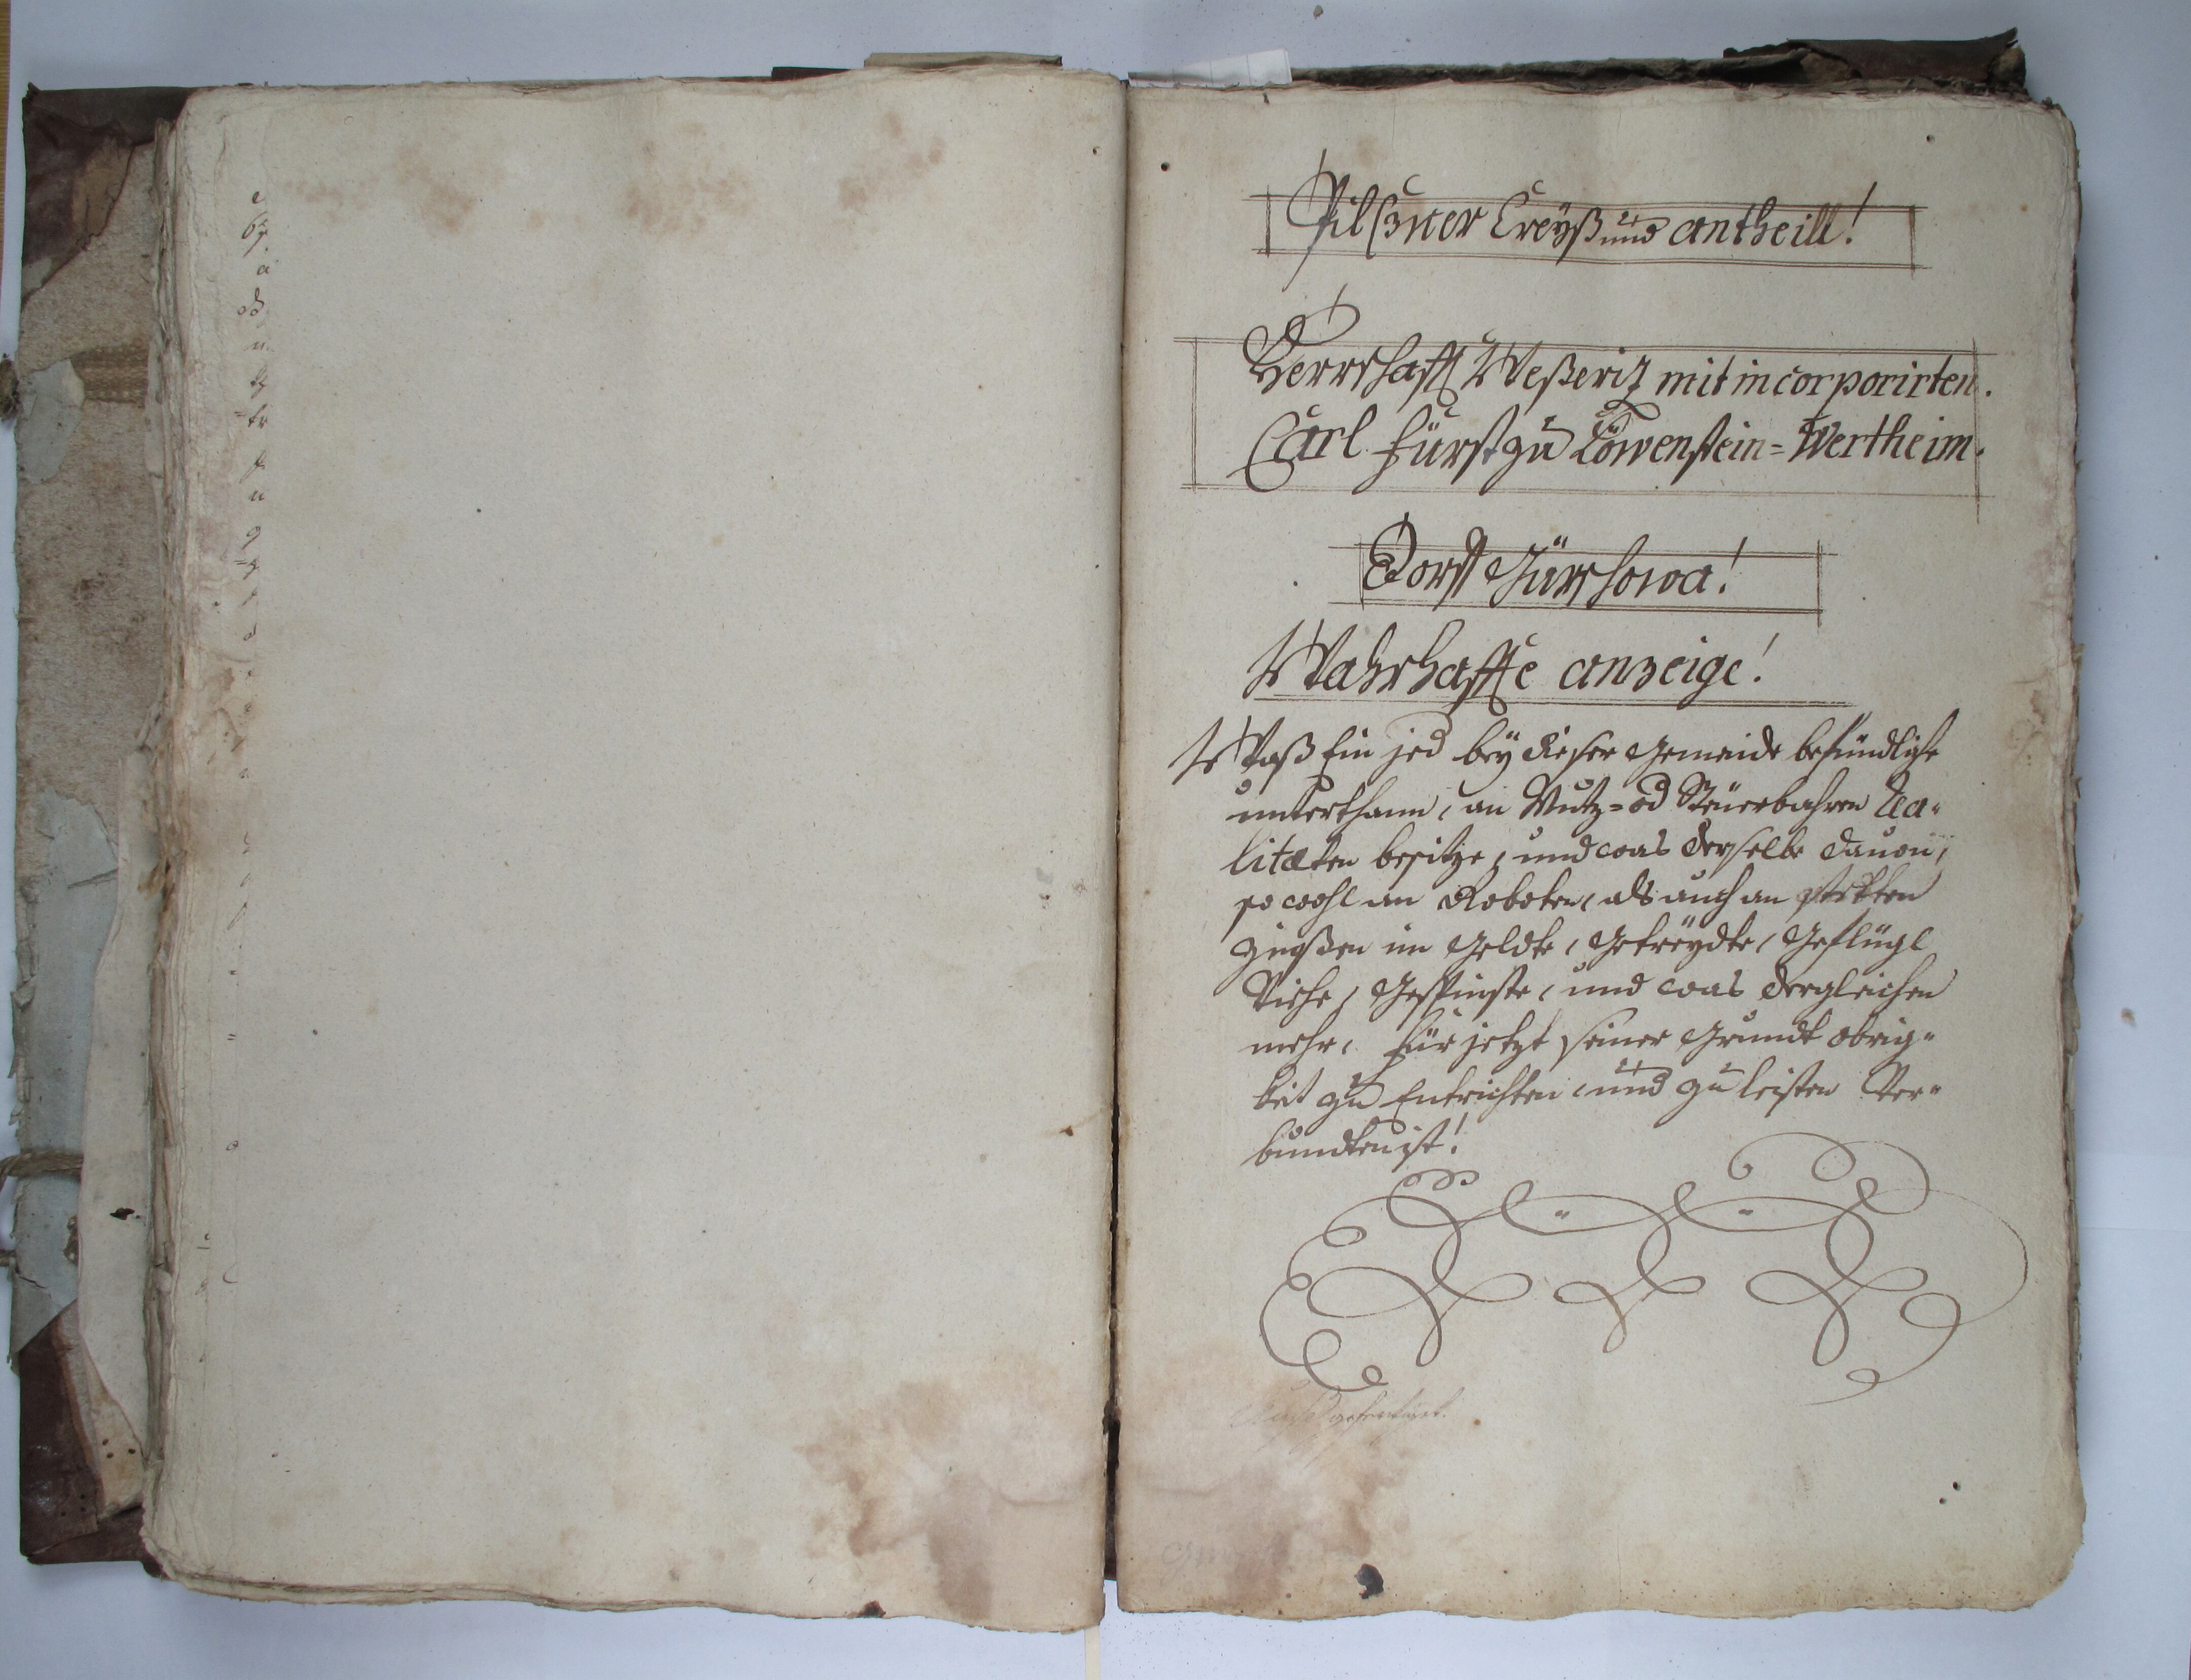 Pilßner Creÿß und antheill!
Herrschafft Weßeritz mit incorporirten.
Carl Fürst zu Löwenstein=Wertheim.
Dorff Gürschowa!
Wahrhaffte anzeige!
Waß Ein jed beÿ dieser Gemeinde befündliche
unterthann, an Nutz= od Steüerbahren Rea=
litæten besitze, und was derselbe dauon,
so wohl an Roboten, als auch an
Zinßen im Geldte, Getreÿdte, Geflügl
Viehe, Gespinste, und was dergleichen
mehr, für jetzt seiner Grundt obrig=
keit zu Entrichten, und zu leisten Ver=
bundten ist!